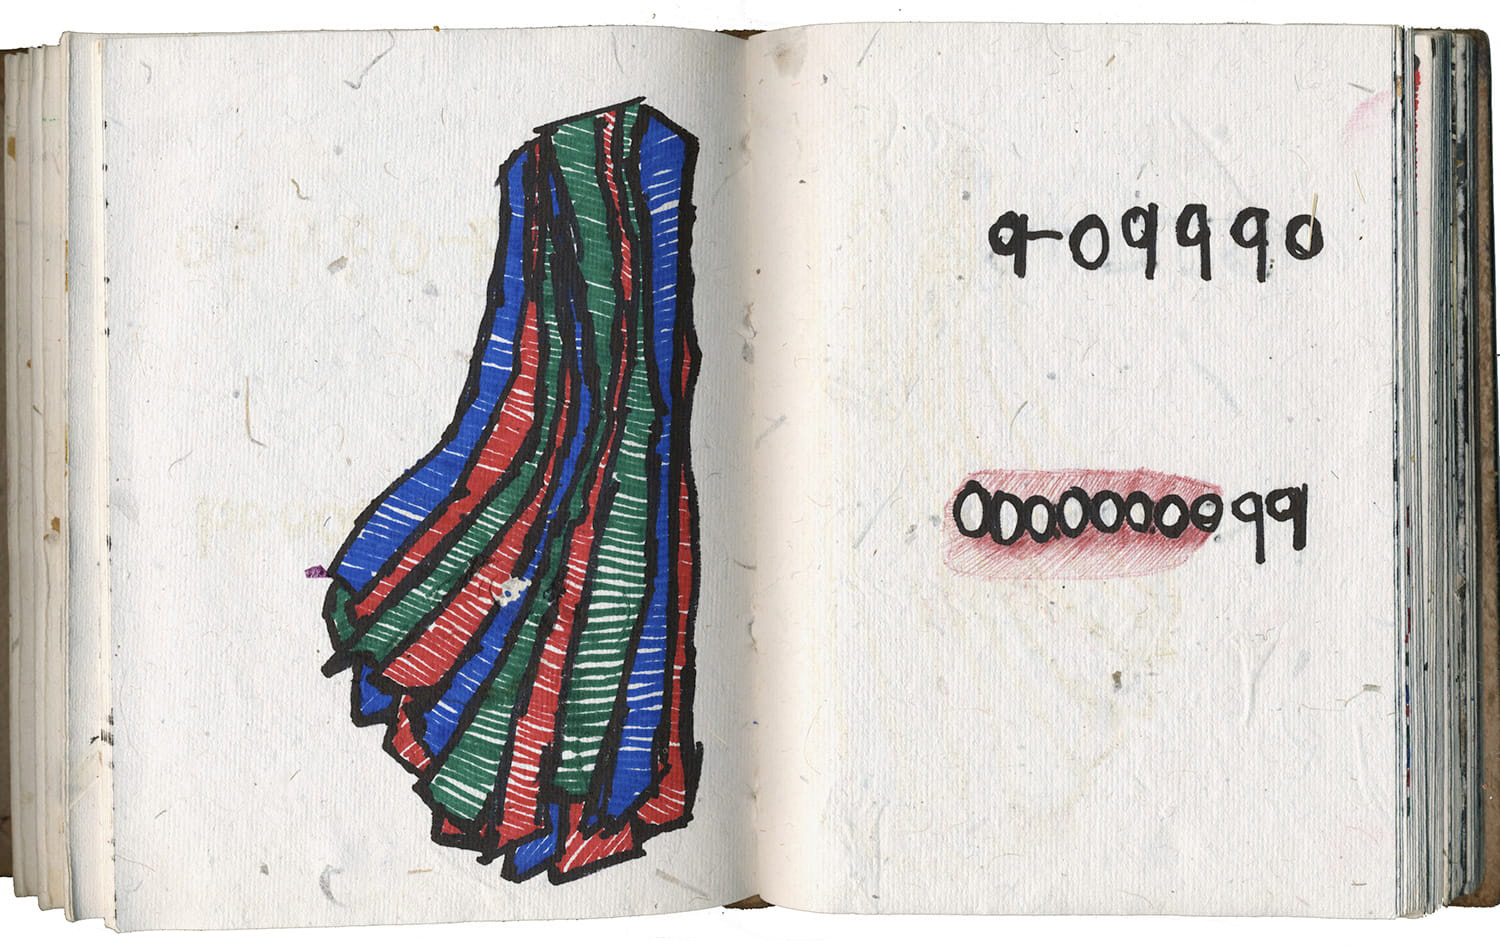 9-09990
0000000099